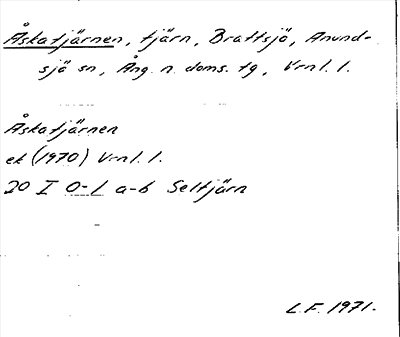 Åskatjärnen, tjärn, Brattsjö, Anund-
sjö sn, Ång. n. doms. tg, Vrnl. l.
Åskatjärnen
ek (1970) Vrnl. l.
20 I 0-1 a-b Seltjärn
L.F. 1971.